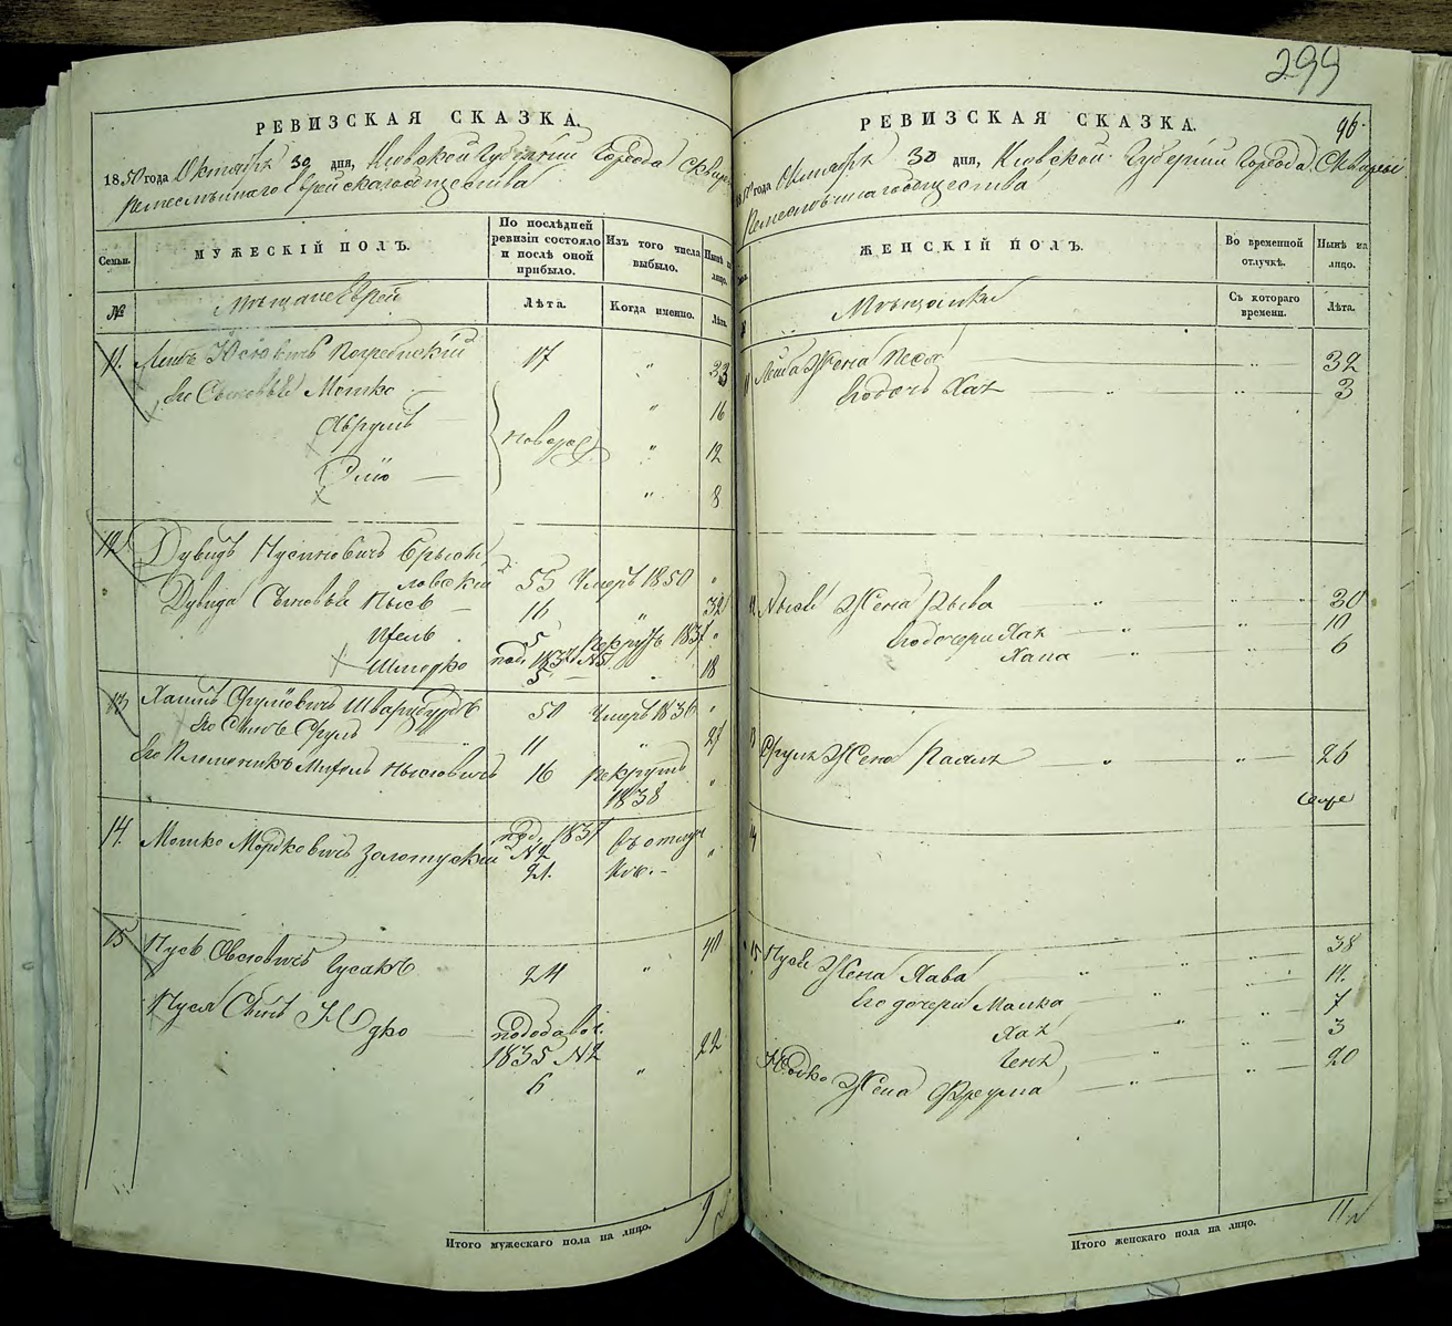 299
РЕВИЗСКАЯ СКАЗКА.
1850 года Октября 30 дня, Кіевской Губерніи Города Сквиры
Ремесленнаго Еврейскаго общества
Семьи.
МУЖЕСКІЙ ПОЛЪ.
По послѣдней ревизіи состояло и послѣ оной прибыло.
Изъ того числа выбыло.
Нынѣ на лицо.
№
Мѣщане Евреи
Лѣта.
Когда именно.
Лѣта.
11. Лейбъ Юсіовичъ Погребискій 17 " 33
Его Сыновья Мошко — " 16
Аврумъ — новорож. " 12
Элiо — " 8
12. Дувидъ Нусиновичъ
ловскій 55 Умеръ 1850 "
Дувида Сыновья Нысь — 16 " 32
Ицель 5 Рекрутъ 1837 "
Шмерко под. 1837 №5 5 " 18
13 Хаимъ Сруліовичъ Шварцбурдъ 50 Умеръ 1836 "
Его Сынъ Сруль 11 " 27
Его Племенникъ Нысіовичъ 16 рекрутъ 1838 "
14. Мошко Мордковичъ Золотускій под. 1837 №2 21. Въ отлуч "
15 Нусь Овсіовичъ Гусакъ 24 " 40
Нуся Сынъ Юдко — подобавоч. 1835 №2 6 " 22
Итого мужескаго пола на лицо. 9
РЕВИЗСКАЯ СКАЗКА.
96.
1850 года Октября 30 дня, Кіевской Губерніи Города Сквиры
Ремесленнаго общества
ЖЕНСКІЙ ПОЛЪ.
Во временной отлучкѣ.
Нынѣ на лицо.
Мѣщанки
Съ котораго времени.
Лѣта.
11 Лейба Жена Песя — " 32
Его дочь Хая — " — " 3
12 Ныся Жена Рыва — " — " 30
Его дочери Хая — " — " 10
Хана — " — " 6
13 Сруля Жена — " — " 26
14
15 Нуся Жена Хава " " 38
Его дочери Малка — " — " 14.
Хая " " 7
Геня " " 3
Юдко Жена Фрейма — " — " 20
Итого женскаго пола на лицо. 11